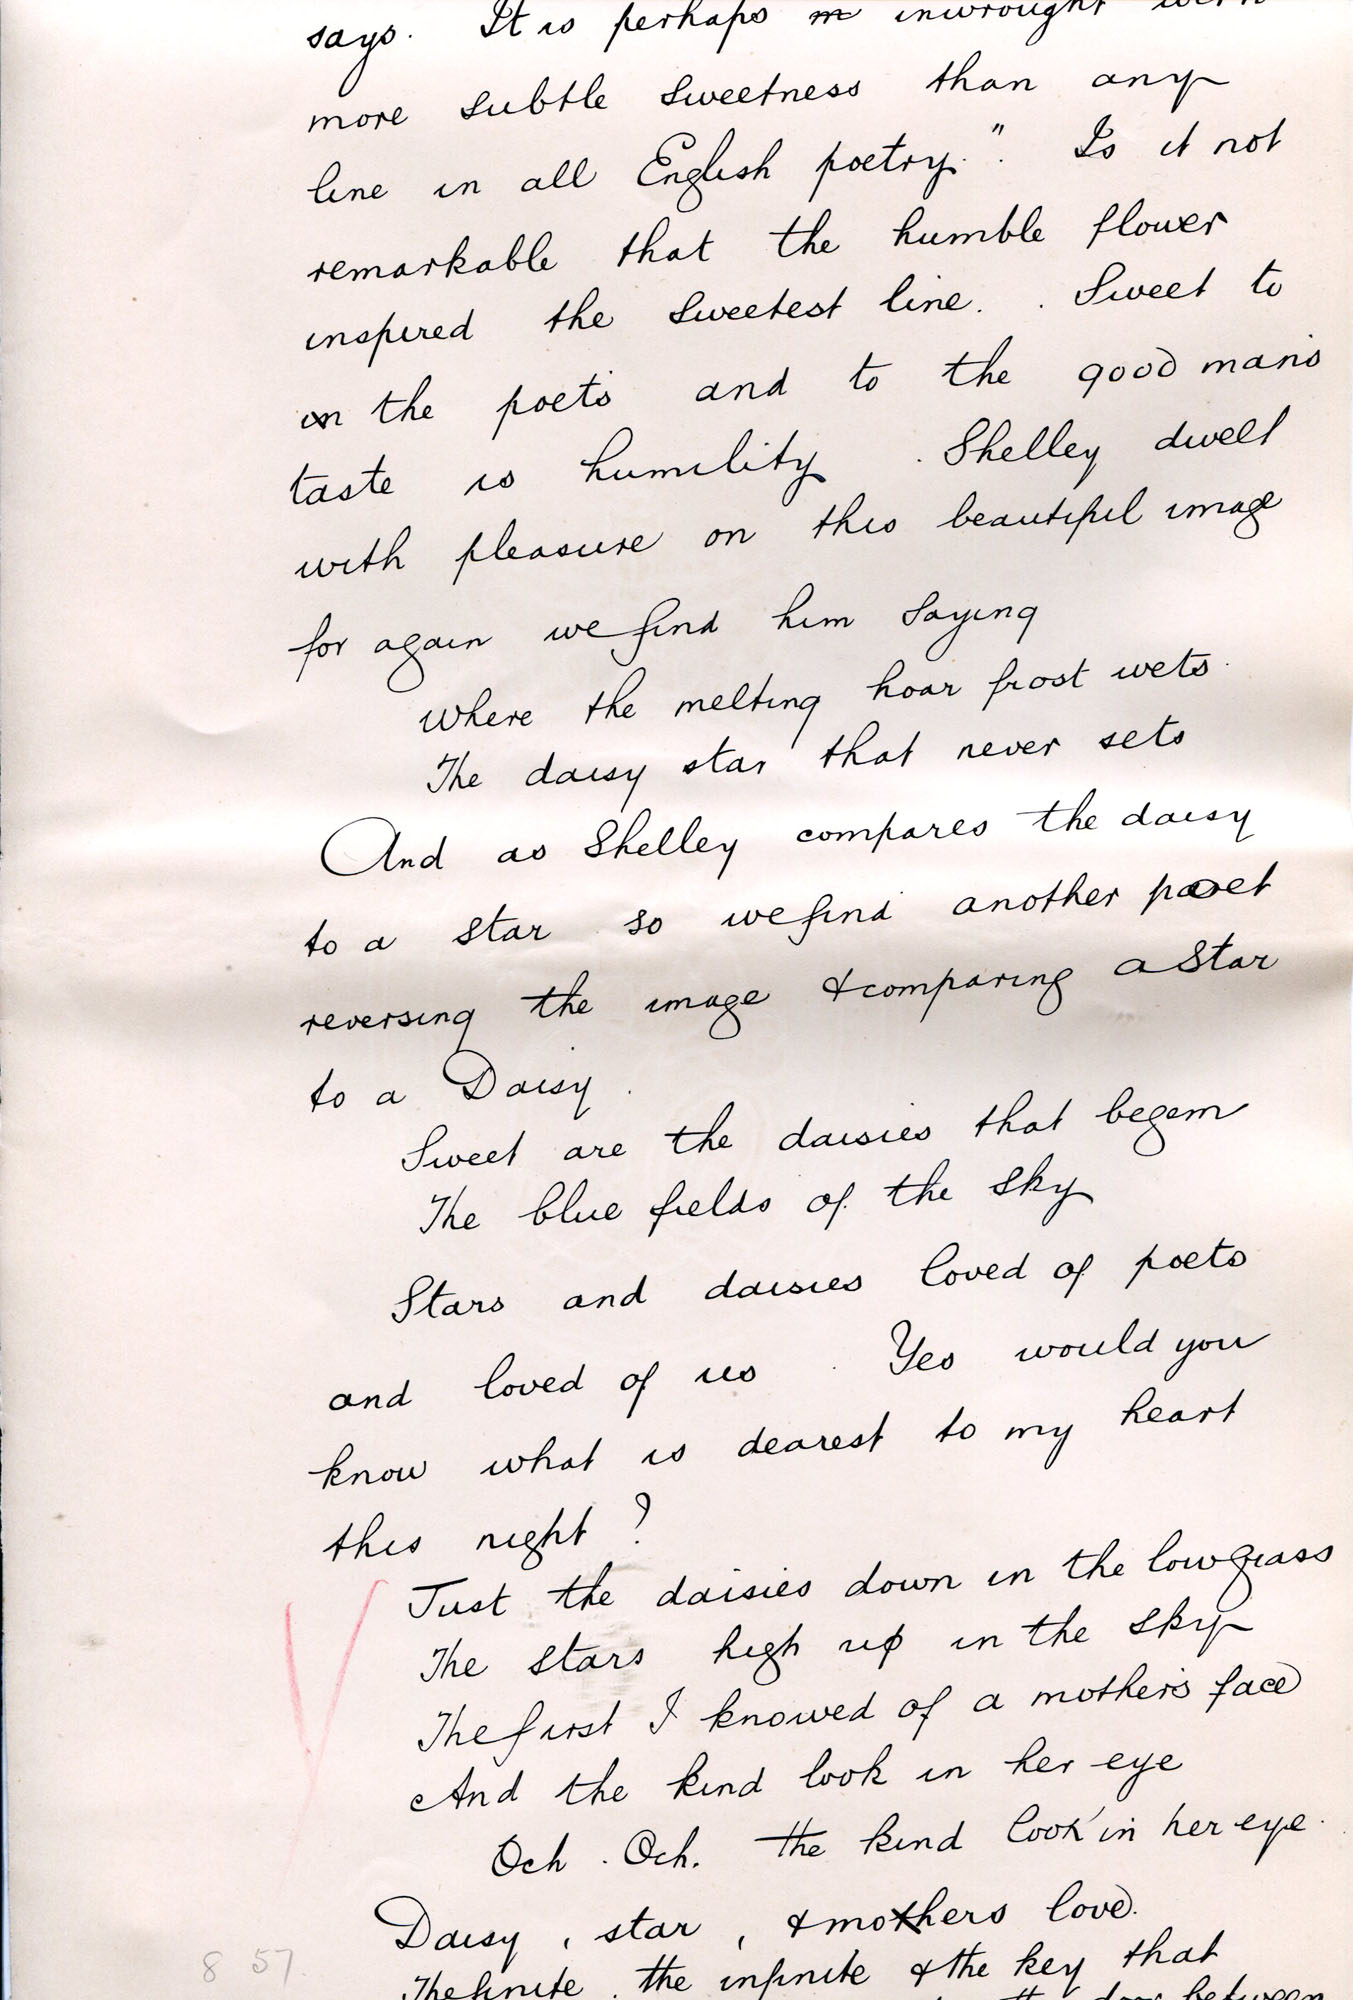 says. It is perhaps m inwrought with
more subtle sweetness than any
line in all English poetry.". Is it not
remarkable that the humble flower
inspired the sweetest line. . Sweet to
in the poets and to the good mans
taste is humility . Shelley dwelt
with pleasure on this beautiful image
for again we find him saying
Where the melting hoar frost wets.
The daisy star that never sets
And as Shelley compares the daisy
to a star so we find another poet
reversing the image & comparing a Star
to a Daisy.
Sweet are the daisies that begem
The blue fields of the sky
Stars and daisies loved of poets
and loved of us . Yes would you
know what is dearest to my heart
this night ?
Just the daisies down in the low grass
The stars high up in the sky
The first I knowed of a mother's face
And the kind look in her eye
Och . Och. the kind look in her eye.
Daisy , star , & mothers love.
The finite , the infinite & the key that
the door between
8 57.